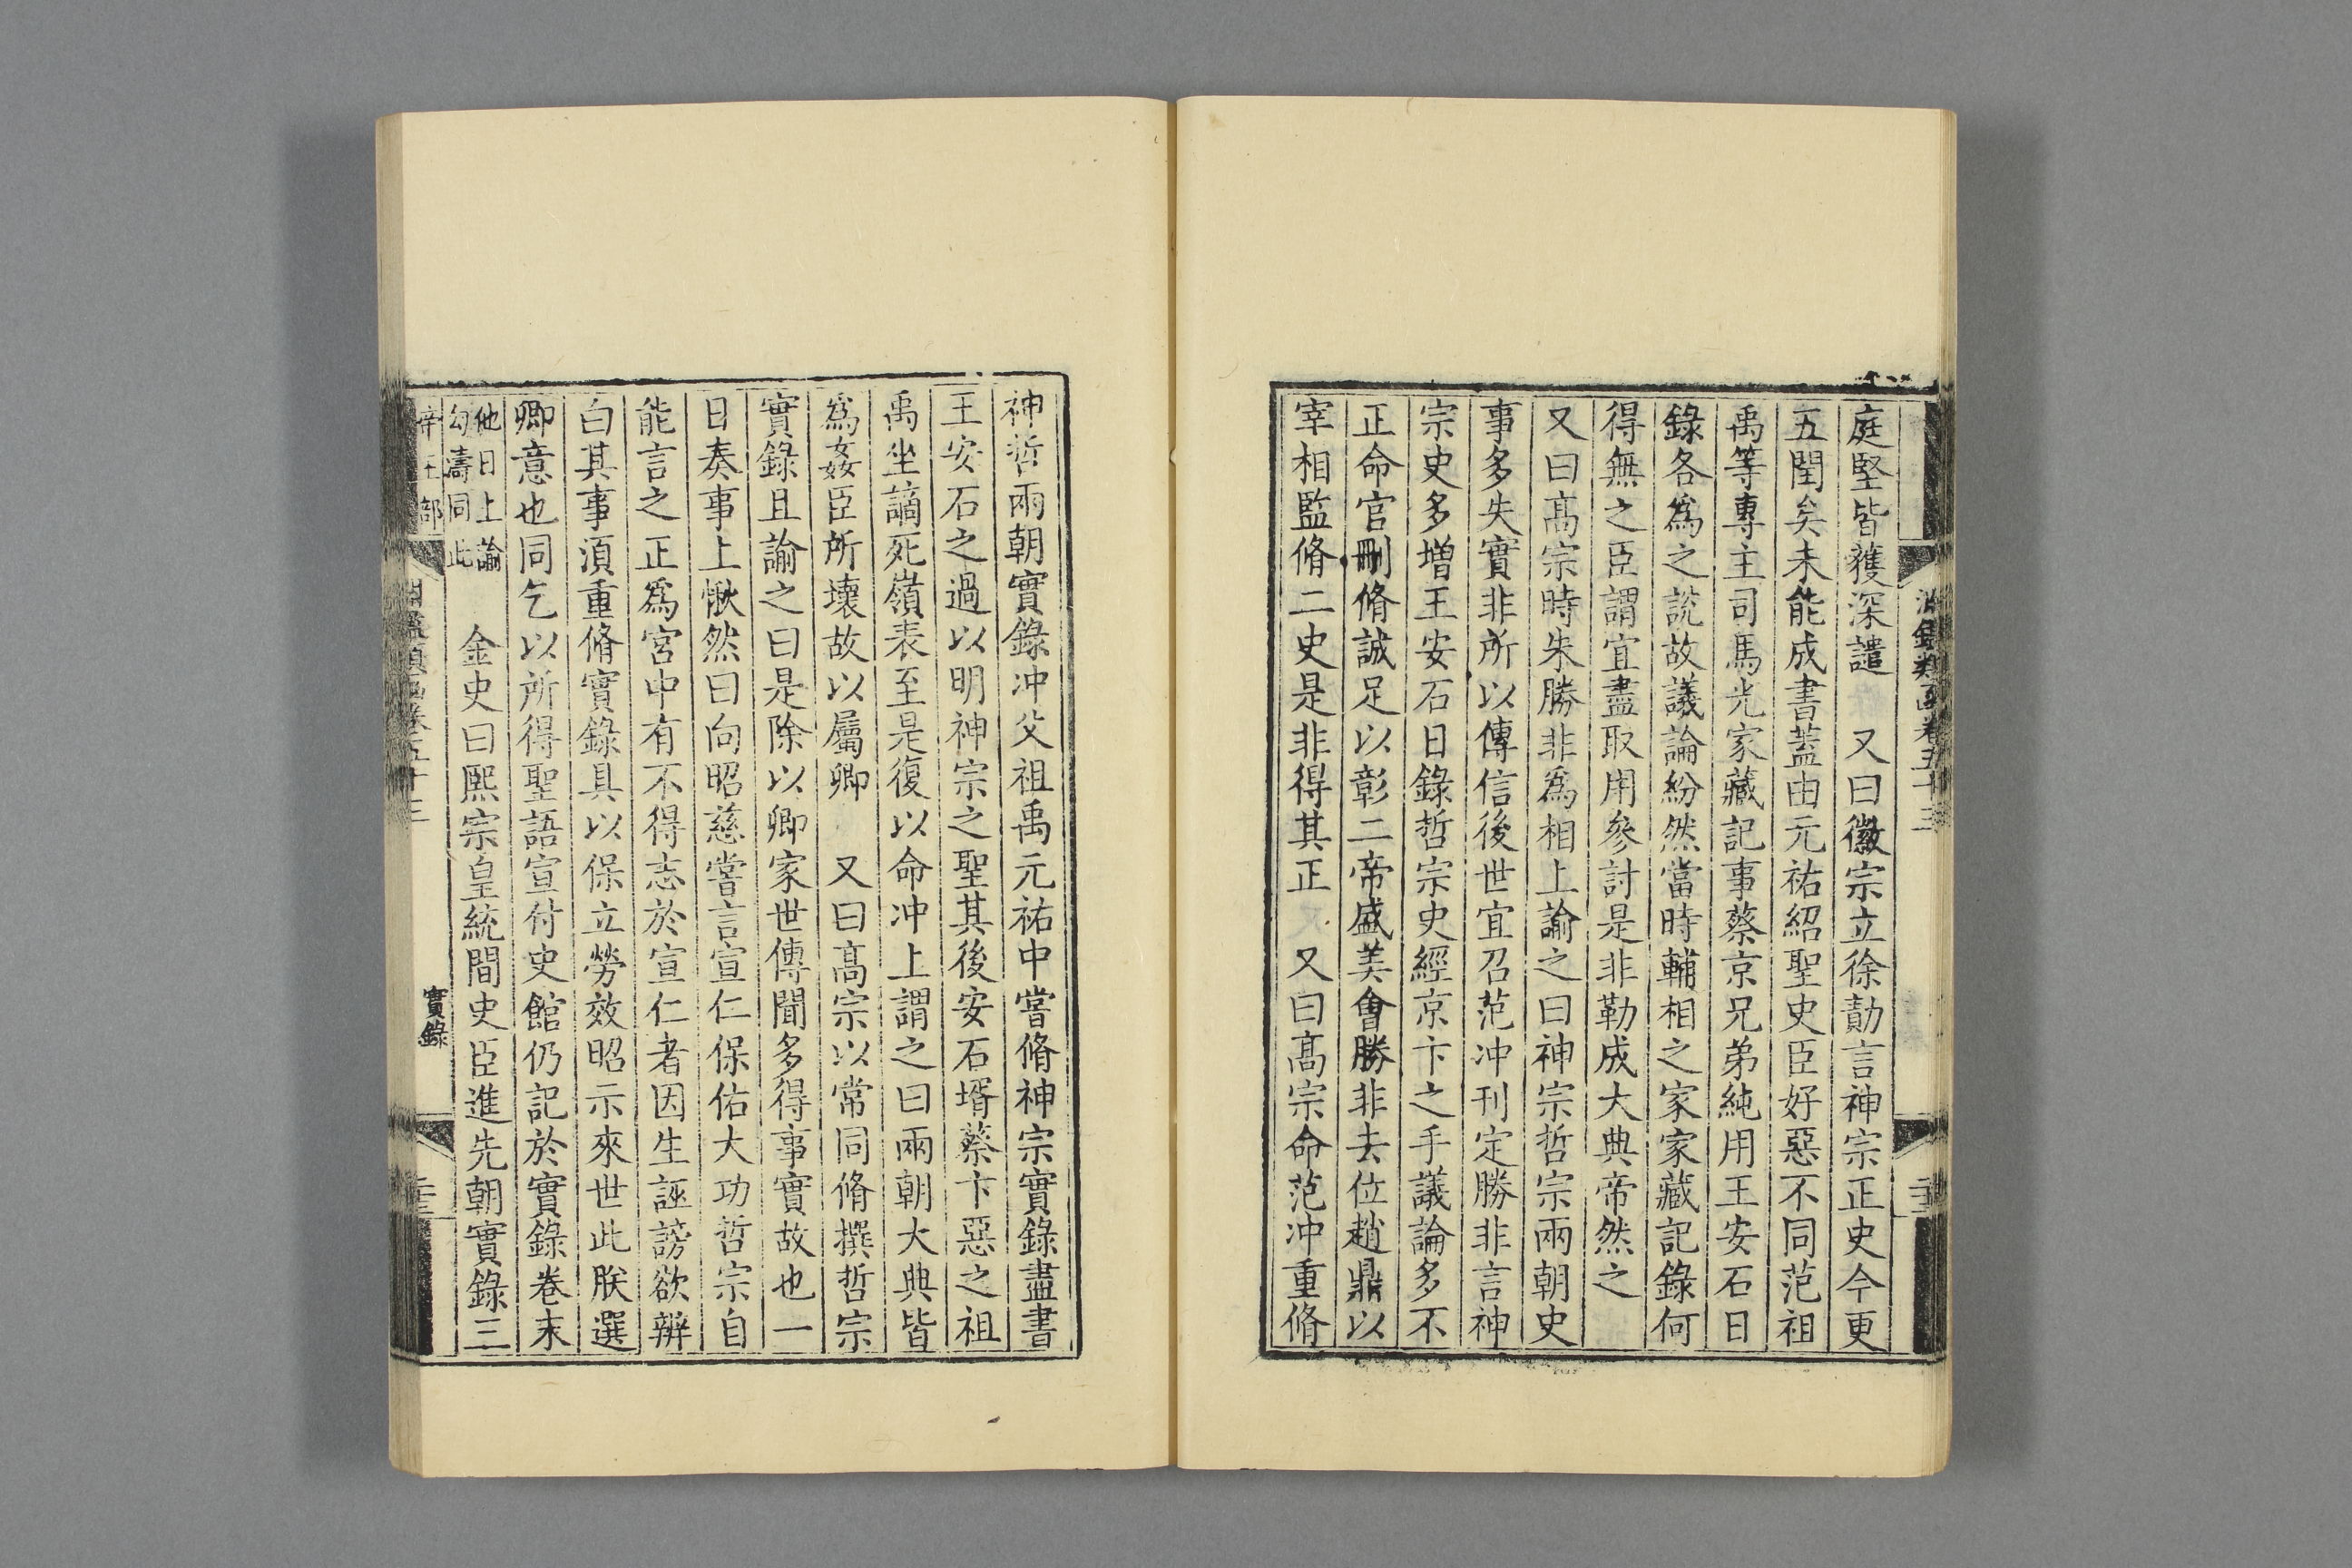 庭堅皆獲深譴　又曰徽宗立徐勣言神宗正史今更
五閏矣未能成書蓋由元祐紹聖史臣好惡不同范祖
禹等專主司馬光家藏記事蔡京兄弟純用王安石日
錄各爲之說故議論紛然當時輔相之家家藏記錄何
得無之臣謂宜盡取用參討是非勒成大典帝然之
又曰髙宗時朱勝非爲相上諭之曰神宗哲宗兩朝史
事多失實非所以傳信後世宜召范冲刊定勝非言神
宗史多增王安石日錄哲宗史經京卞之手議論多不
正命官刪脩誠足以彰二帝盛美會勝非去位趙鼎以
宰相監脩二史是非得其正　又曰髙宗命范冲重脩
神哲兩朝實錄冲父祖禹元祐中嘗脩神宗實錄盡書
王安石之過以明神宗之聖其後安石壻蔡卞惡之祖
禹坐謫死嶺表至是復以命冲上謂之曰兩朝大典皆
爲姦臣所壞故以屬卿　又曰髙宗以常同脩撰哲宗
實錄且諭之曰是除以卿家世傳聞多得事實故也一
日奏事上愀然曰向昭慈嘗言宣仁保佑大功哲宗自
能言之正爲宮中有不得志於宣仁者因生誣謗欲辨
白其事須重脩實錄具以保立勞效昭示來世此朕選
卿意也同乞以所得聖語宣付史館仍記於實錄卷末
他日上諭
勾濤同此
金史曰熙宗皇統間史臣進先朝實錄三
帝王部
淵鑑類函卷五十三
實錄